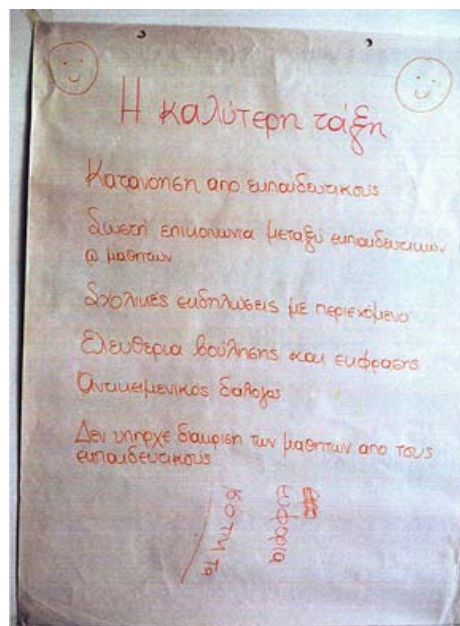 Η καλύτερη τάξη
Κατανοηση απο εκπαιδευτικους
Σωστή επικοινωνια μεταξύ εκπαιδευτικων
@ μαθητων
Σχολικές εκδηλώσεις με περιεχόμενο
Ελευθερια βούλησης και εκφρασης
Αντικειμενικός διάλογος
Δεν υπηρχε διακριση των μαθητων απο τους
εκπαιδευτικούς
ευφορια